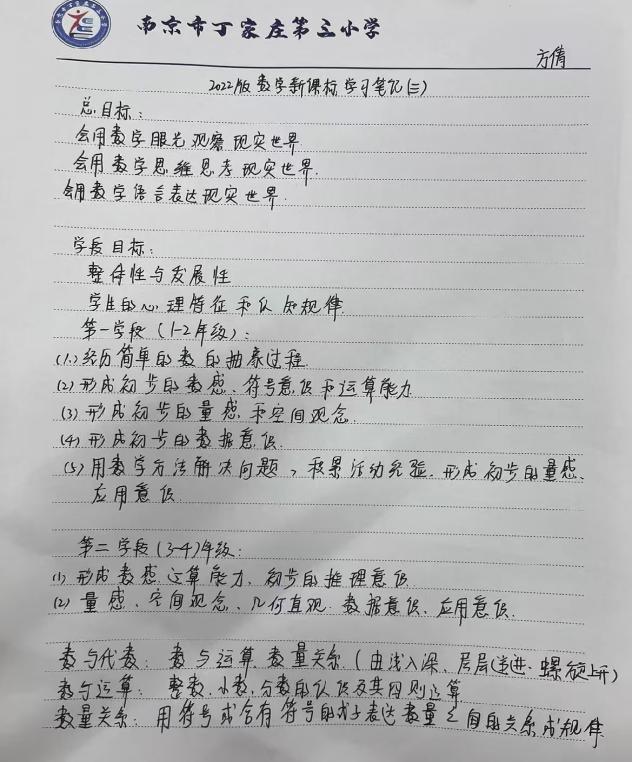 南京市丁家庄第三小学
方倩
2022版数学新课标学习笔记(三)
总目标:
会用数学眼光观察现实世界
会用数学思维思考现实世界.
会用数学语言表达现实世界.
学段目标:
整体性与发展性
学生的心理特征和认知规律
第一学段(1-2年级):
(1)经历简单的数的抽象过程
(2)形成初步的数感、符号意识和运算能力
(3)形成初步的量感和空间观念.
(4)形成初步的数据意识.
(5)用数学方法解决问题,积累活动经验.形成初步的量感、
应用意识
第二学段(3-4)年级:
(1)形成数感.运算能力、初步的推理意识
(2)量感、空间观念、几何直观.数据意识、应用意识.
数与代数:数与运算.数量关系(由浅入深、层层递进.螺旋上升)
数与运算:整数.小数.分数的认识及其四则运算
数量关系:用符号或含有符号的式子表达数量之间的关系或规律